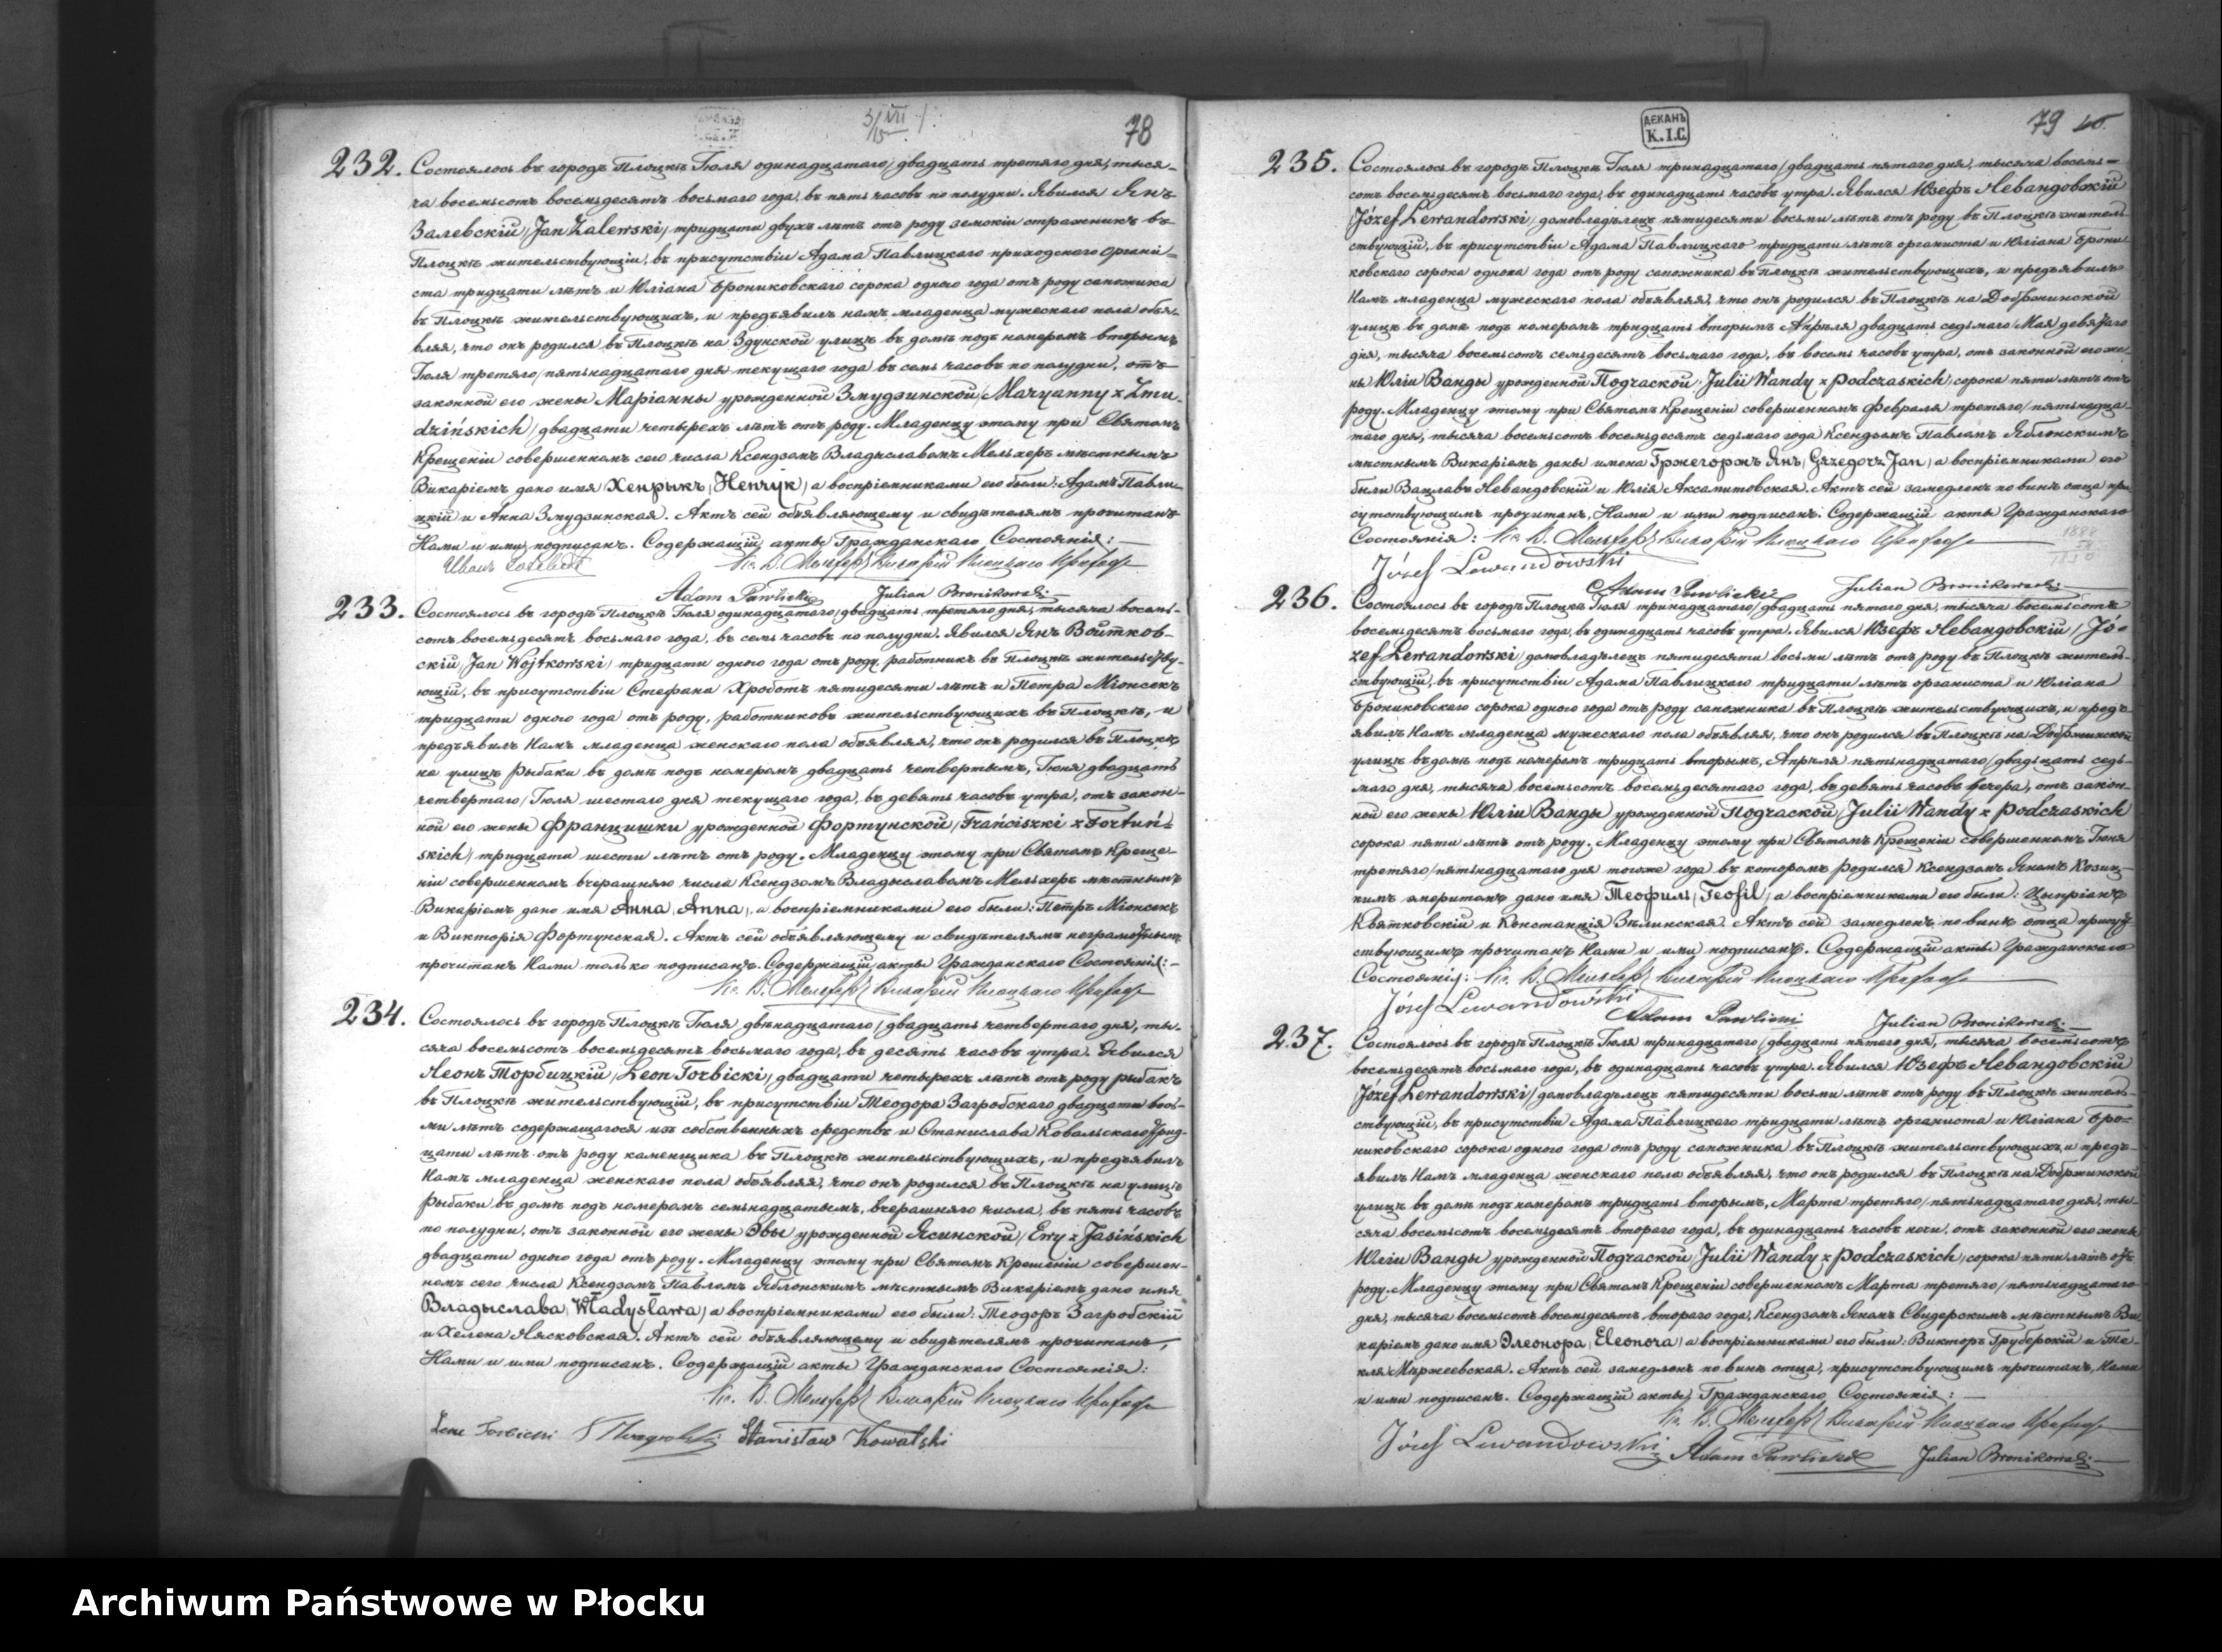 78
232. Состоялось въ городѣ Плоцкѣ Іюля одинадцатаго/двадцать третяго дня, тыся-
ча восемьсотъ восемьдесятъ восьмаго года, въ пять часовъ по полудни. Явился Янъ
Залевскій /Jan Zalewski/ тридцати двухъ лѣтъ отъ роду земскій стражникъ въ
Плоцкѣ жительствующій, въ присутствіи Адама Павлицкаго приходскаго органи-
ста тридцати лѣтъ и Юліана Брониковскаго сорока одного года отъ роду сапожника
въ Плоцкѣ жительствующихъ, и предъявилъ намъ младенца мужескаго пола объя-
вляя, что онъ родился въ Плоцкѣ на Здунской улицѣ въ домѣ подъ номеромъ вторымъ
Іюля третяго/пятьнадцатаго дня текущаго года въ семь часовъ по полудни, отъ
законной его жены Маріанны урожденной Змудзинской /Maryanny z Żmu-
dzińskich/ двадцати четырехъ лѣтъ отъ роду. Младенцу этому при Святомъ
Крещеніи совершенномъ сего числа Ксендзомъ Владыславомъ Мельхеръ мѣстнымъ
Викаріемъ дано имя Хенрыкъ /Henryk/ а воспріемниками его были: Адамъ Павли-
цкій и Анна Змудзинская. Актъ сей объявляющему и свидѣтелямъ прочитанъ
Нами и ими подписанъ. Содержащій акты Гражданскаго Состоянія:
Кс. В. Мельхеръ Викарій Плоцкаго Прихода
Adam Pawlicki Julian Bronikowski
233. Состоялось въ городѣ Плоцкѣ Іюля одинадцатаго/двадцать третяго дня, тысяча восемь-
сотъ восемьдесятъ восьмаго года, въ семь часовъ по полудни. Явился Янъ Войтков-
скій /Jan Wojtkowski/ тридцати одного года отъ роду, работникъ въ Плоцкѣ жительству-
ющій, въ присутствіи Стефана Хроботъ пятидесяти лѣтъ и Петра Міонсекъ
тридцати одного года отъ роду, работниковъ жительствующихъ въ Плоцкѣ, и
предъявилъ Намъ младенца женскаго пола объявляя, что онъ родился въ Плоцкѣ
на улицѣ Рыбаки въ домѣ подъ номеромъ двадцать четвертымъ, Іюня двадцать
четвертаго/Іюля шестаго дня текущаго года, въ девять часовъ утра, отъ закон-
ной его жены Францишки урожденной Фортунской /Franciszki z Fortuń-
skich/ тридцати шести лѣтъ отъ роду. Младенцу этому при Святомъ Креще-
ніи совершенномъ вчерашняго числа Ксендзомъ Владыславомъ Мельхеръ мѣстнымъ
Викаріемъ дано имя Анна /Anna/, а воспріемниками его были: Петръ Міонсекъ
и Викторія Фортунская. Актъ сей объявляющему и свидѣтелямъ неграмотнымъ
прочитанъ Нами только подписанъ. Содержащій акты Гражданскаго Состоянія:
Кс. В. Мельхеръ Викарій Плоцкаго Прихода
234. Состоялось въ городѣ Плоцкѣ Іюля двѣнадцатаго/двадцать четвертаго дня, ты-
сяча восемьсотъ восемьдесятъ восьмаго года, въ десять часовъ утра. Явился
Леонъ Торбицкій /Leon Torbicki/ двадцати четырехъ лѣтъ отъ роду рыбакъ
въ Плоцкѣ жительствующій, въ присутствіи Теодора Загробскаго двадцати вось-
ми лѣтъ содержащагося изъ собственныхъ средствъ и Станислава Ковальскаго трид-
цати лѣтъ отъ роду каменщика въ Плоцкѣ жительствующихъ, и предъявилъ
Намъ младенца женскаго пола объявляя, что онъ родился въ Плоцкѣ на улицѣ
Рыбаки въ домѣ подъ номеромъ семьнадцатымъ, вчерашняго числа, въ пять часовъ
по полудни, отъ законной его жены Эвы урожденной Ясинской /Ewy z Jasińskich
двадцати одного года отъ роду. Младенцу этому при Святомъ Крещеніи совершен-
номъ сего числа Ксендзомъ Павломъ Яблонскимъ мѣстнымъ Викаріемъ дано имя
Владыслава /Władysława/ а воспріемниками его были: Теодоръ Загробскій
и Хелена Лясковская. Актъ сей объявляющему и свидѣтелямъ прочитанъ,
Нами и ими подписанъ. Содержащій акты Гражданскаго Состоянія:
Кс. В. Мельхеръ Викарій Плоцкаго Прихода
Leon Torbicki Stanisław Kowalski
ДЕКАНЪ
K.I.C.
79
235. Состоялось въ городѣ Плоцкѣ Іюля тринадцатаго/двадцать пятаго дня, тысяча восемь-
сотъ восемьдесятъ восьмаго года, въ одинадцать часовъ утра. Явился Юзефъ Левандовскій
/Józef Lewandowski/ домовладѣлецъ пятидесяти восьми лѣтъ отъ роду въ Плоцкѣ житель-
ствующій, въ присутствіи Адама Павлицкаго тридцати лѣтъ органиста и Юліана Брони-
ковскаго сорока одного года отъ роду сапожника въ Плоцкѣ жительствующихъ, и предъявилъ
Намъ младенца мужескаго пола объявляя, что онъ родился въ Плоцкѣ на Добржинской
улицѣ въ домѣ подъ номеромъ тридцать вторымъ Апрѣля двадцать седьмаго/Мая девятаго
дня, тысяча восемьсотъ семьдесятъ восьмаго года, въ восемь часовъ утра, отъ законной его же-
ны Юліи Ванды урожденной Подчаской /Julii Wandy z Podczaskich/ сорока пяти лѣтъ отъ
роду. Младенцу этому при Святомъ Крещеніи совершенномъ Февраля третяго/пятьнадца-
таго дня, тысяча восемьсотъ восемьдесятъ седьмаго года Ксендзомъ Павломъ Яблонскимъ
мѣстнымъ Викаріемъ даны имена Гржегоржъ Янъ /Grzegorz Jan/ а воспріемниками его
были Вацлавъ Левандовскій и Юлія Аксамитовская. Актъ сей замедленъ по винѣ отца при-
сутствующимъ прочитанъ, Нами и ими подписанъ. Содержащій акты Гражданскаго
Состоянія: Кс. В. Мельхеръ Викарій Плоцкаго Прихода
Józef Lewandowski
Adam Pawlicki Julian Bronikowski
236. Состоялось въ городѣ Плоцкѣ Іюля тринадцатаго/двадцать пятаго дня, тысяча восемьсотъ
восемьдесятъ восьмаго года, въ одинадцать часовъ утра. Явился Юзефъ Левандовскій /Jó-
zef Lewandowski/ домовладѣлецъ пятидесяти восьми лѣтъ отъ роду въ Плоцкѣ житель-
ствующій, въ присутствіи Адама Павлицкаго тридцати лѣтъ органиста и Юліана
Брониковскаго сорока одного года отъ роду сапожника въ Плоцкѣ жительствующихъ, и предъ-
явилъ Намъ младенца мужескаго пола объявляя, что онъ родился въ Плоцкѣ на Добржинской
улицѣ въ домѣ подъ номеромъ тридцать вторымъ, Апрѣля пятьнадцатаго/двадцать седь-
маго дня, тысяча восемьсотъ восемьдесятаго года, въ девять часовъ вечера, отъ закон-
ной его жены Юліи Ванды урожденной Подчаской /Julii Wandy z Podczaskich
сорока пяти лѣтъ отъ роду. Младенцу этому при Святомъ Крещеніи совершенномъ Іюня
третяго/пятьнадцатаго дня тогоже года въ которомъ родился Ксендзомъ Яномъ Козиц-
кимъ эмеритомъ дано имя Теофилъ /Teofil/ а воспріемниками его были: Цыпріанъ
Квятковскій и Констанція Зѣлинская. Актъ сей замедленъ по винѣ отца присут-
ствующимъ прочитанъ Нами и ими подписанъ. Содержащій акты Гражданскаго
Состоянія: Кс. В. Мельхеръ Викарій Плоцкаго Прихода
Józef Lewandowski
Adam Pawlicki Julian Bronikowski
237. Состоялось въ городѣ Плоцкѣ Іюля тринадцатаго/двадцать пятаго дня, тысяча восемьсотъ
восемьдесятъ восьмаго года, въ одинадцать часовъ утра. Явился Юзефъ Левандовскій
/Józef Lewandowski/ домовладѣлецъ пятидесяти восьми лѣтъ отъ роду въ Плоцкѣ житель-
ствующій, въ присутствіи Адама Павлицкаго тридцати лѣтъ органиста и Юліана Бро-
никовскаго сорока одного года отъ роду сапожника въ Плоцкѣ жительствующихъ, и предъ-
явилъ Намъ младенца женскаго пола объявляя, что онъ родился въ Плоцкѣ на Добржинской
улицѣ въ домѣ подъ номеромъ тридцать вторымъ, Марта третяго/пятьнадцатаго дня, ты-
сяча восемьсотъ восемьдесятъ втораго года, въ одинадцать часовъ ночи, отъ законной его жены
Юліи Ванды урожденной Подчаской /Julii Wandy z Podczaskich/ сорока пяти лѣтъ отъ
роду. Младенцу этому при Святомъ Крещеніи совершенномъ Марта третяго/пятьнадцатаго
дня, тысяча восемьсотъ восемьдесятъ втораго года, Ксендзомъ Яномъ Свидерскимъ мѣстнымъ Ви-
каріемъ дано имя Элеонора /Eleonora/ а воспріемниками его были: Викторъ Груберскій и Те-
кля Миржеевская. Актъ сей замедленъ по винѣ отца, присутствующимъ прочитанъ, Нами
и ими подписанъ. Содержащій акты Гражданскаго Состоянія:
Кс. В. Мельхеръ Викарій Плоцкаго Прихода
Józef Lewandowski Adam Pawlicki Julian Bronikowski
Archiwum Państwowe w Płocku